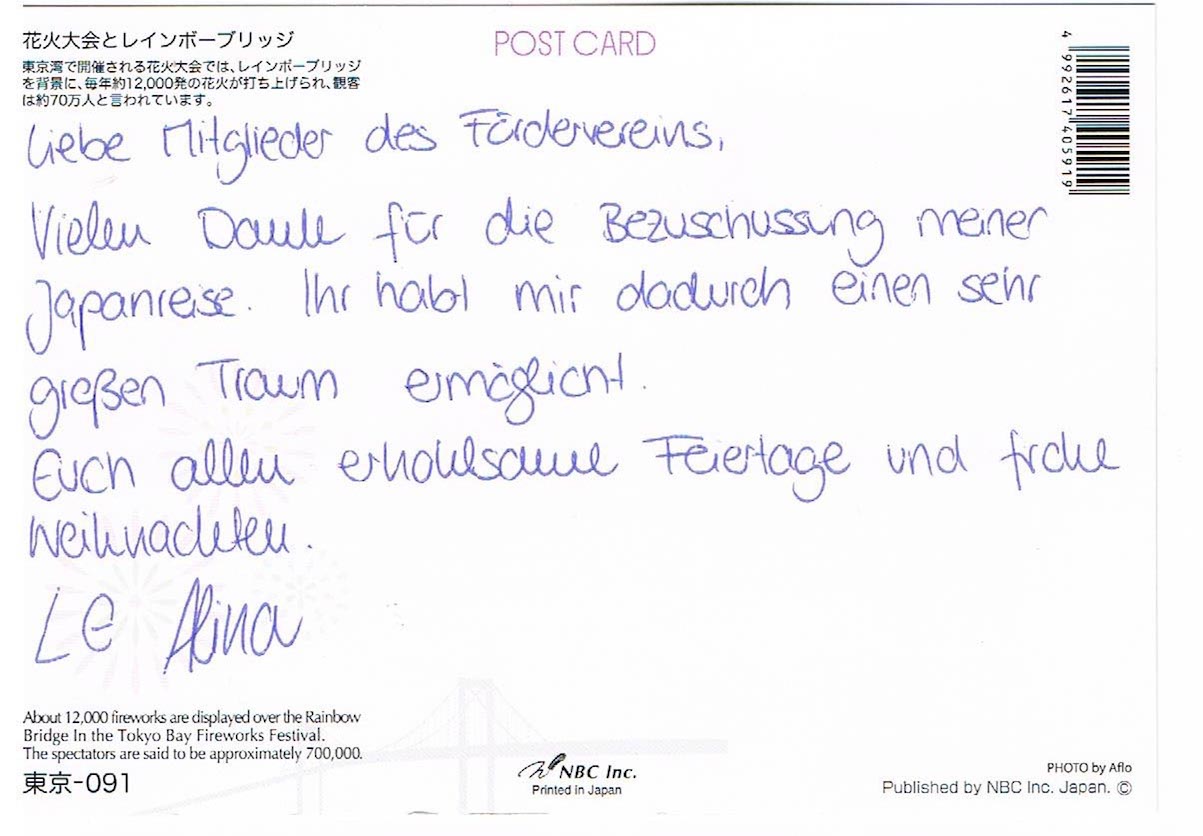 花火大会とレインボーブリッジ
POST CARD
東京湾で開催される花火大会では、レインボーブリッジ
を背景に、毎年約12,000発の花火が打ち上げられ、観客
は約70万人と言われています。
4992617405919
Liebe Mitglieder des Fördervereins,
Vielen Dank für die Bezuschussung meiner
Japanreise. Ihr habt mir dadurch einen sehr
großen Traum ermöglicht.
Euch allen erholsame Feiertage und frohe
Weihnachten.
LG Alina
About 12,000 fireworks are displayed over the Rainbow
Bridge In the Tokyo Bay Fireworks Festival.
The spectators are said to be approximately 700,000.
東京-091
NBC Inc.
Printed in Japan
PHOTO by Aflo
Published by NBC Inc. Japan. ©